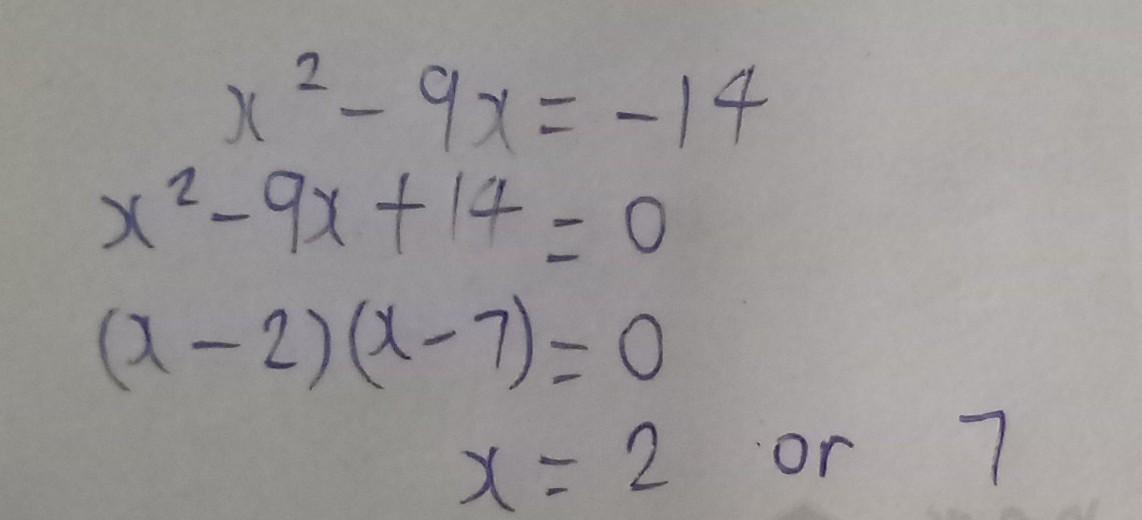 x² - 9x = -14
x² - 9x + 14 = 0
(x - 2)(x - 7) = 0
x = 2 or 7